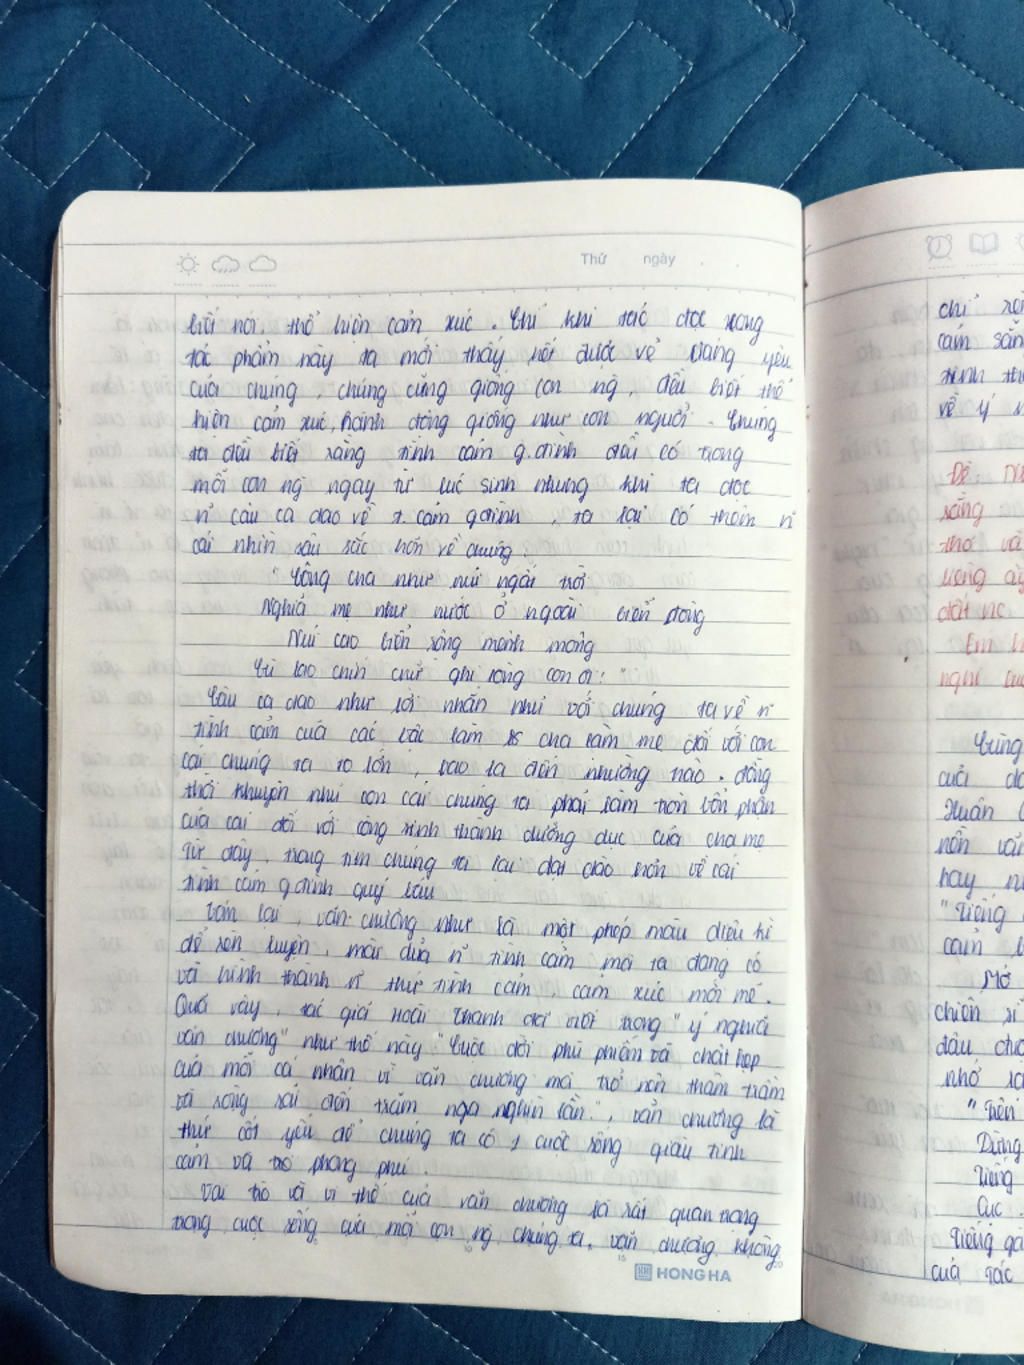 Thứ ngày
biết nói, thể hiện cảm xúc. Chỉ khi ta đọc xong
tác phẩm này ta mới thấy hết được vẻ đáng yêu
của chúng, chúng cũng giống con ng, đều biết thể
hiện cảm xúc, hành động giống như con người. Chúng
ta đều biết rằng tình cảm g.đình đều có trong
mỗi con ng ngay từ lúc sinh nhưng khi ta đọc
n~ câu ca dao về t. cảm gđình, ta lại có thêm n~
cái nhìn sâu sắc hơn về chúng
"Công cha như núi ngất trời
Nghĩa mẹ như nước ở ngoài biển đông
Núi cao biển rộng mênh mông
Cù lao chín chữ ghi lòng con ơi!"
Câu ca dao như lời nhắn nhủ với chúng ta về n~
tình cảm của các bậc làm cha làm mẹ đối với con
cái chúng ta to lớn, bao la đến nhường nào. đồng
thời khuyên nhủ con cái chúng ta phải làm tròn bổn phận
của cái đối với công sinh thành dưỡng dục của cha mẹ
Từ đây, trong tim chúng ta lại dạt dào hơn về cái
tình cảm g đình quý báu
Tóm lại, văn chương như là một phép màu diệu kì
để rèn luyện, mài dũa n~ tình cảm mà ta đang có
và hình thành n~ thứ tình cảm, cảm xúc mới mẻ.
Quả vậy, tác giả Hoài Thanh đã viết trong "ý nghĩa
văn chương" như thế này "Cuộc đời phù phiếm và chật hẹp
của mỗi cá nhân vì văn chương mà trở nên thâm trầm
và rộng rãi đến trăm nga nghìn lần.", văn chương là
thứ cốt yếu để chúng ta có 1 cuộc sống giàu tình
cảm và trở phong phú
Vai trò và vị thế của văn chương là rất quan trọng
trong cuộc sống của mỗi con ng chúng ta. văn chương không
HONG HA
chỉ
cảm
tình
về ý
Đề
rằng
thơ và
đất nc
Em
nghĩ
Cùng
của
Xuân
nên
hay
"Tiếng
cảm
Mở
chiến sĩ
đâu
nhớ
"Trên
Dừng
Tiếng
Cục
Tiếng gà
của tác